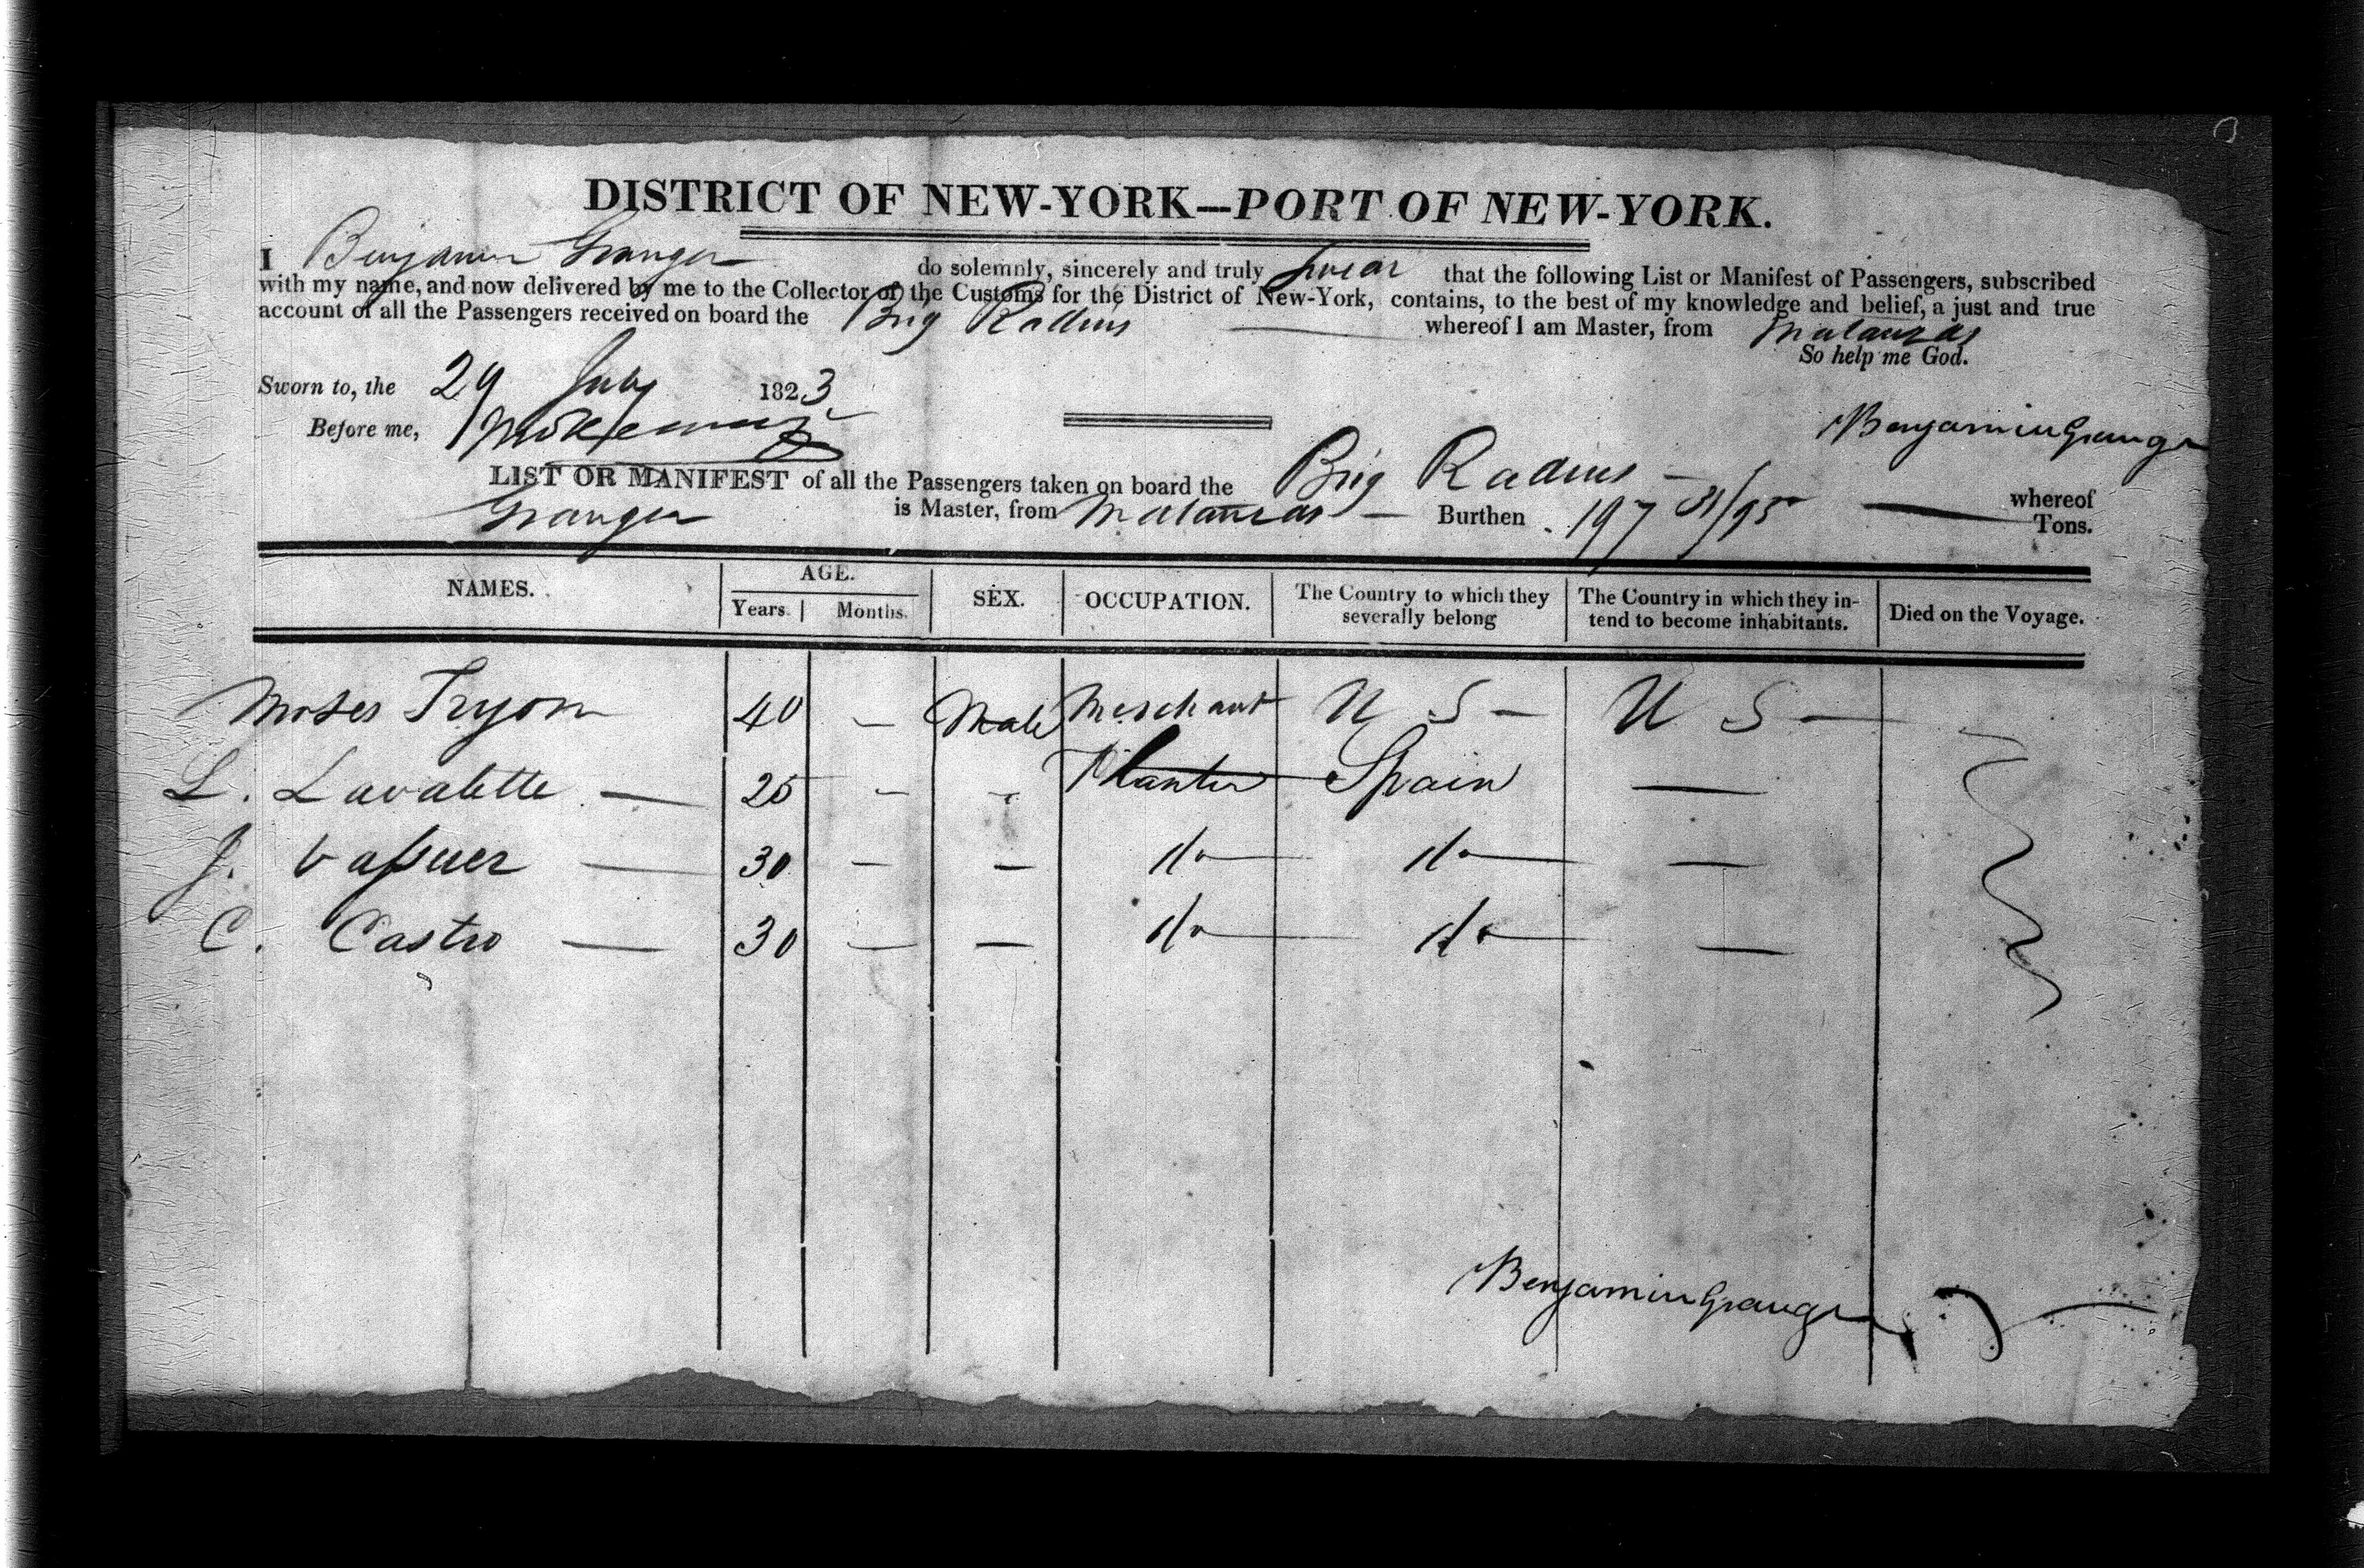 DISTRICT OF NEW-YORK—PORT OF NEW-YORK.
I Benjamin Granger do solemnly, sincerely and truly swear that the following List or Manifest of Passengers, subscribed
with my name, and now delivered by me to the Collector of the Customs for the District of New-York, contains, to the best of my knowledge and belief, a just and true
account of all the Passengers received on board the Brig Radius — whereof I am Master, from Matanzas
So help me God.
Sworn to, the 29 July 1823
Before me,
Benjamin Granger
LIST OR MANIFEST of all the Passengers taken on board the Brig Radius — whereof
Granger is Master, from Matanzas — Burthen 197 31/95 — Tons.
NAMES. AGE. SEX. OCCUPATION. The Country to which they severally belong The Country in which they intend to become inhabitants. Died on the Voyage.
Years. Months.
Moses Tryon 40 — Male Merchant U S — U S —
L. Lavalette — 25 - - Planter Spain —
J. Vaſsuer — 30 — — do — do — —
C. Castro — 30 — — do — do — —
Benjamin Granger